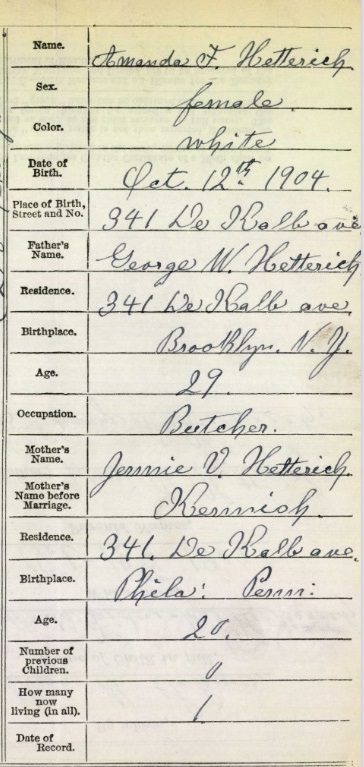 Name. Amanda F. Hetterich
Sex. female.
Color. white
Date of
Birth. Oct. 12th 1904.
Place of Birth,
Street and No. 341 De Kalb ave
Father's
Name. George W. Hetterich
Residence. 341 De Kalb ave.
Birthplace. Brooklyn. N.Y.
Age. 29
Occupation. Butcher.
Mother's
Name. Jennie V. Hetterich.
Mother's
Name before
Marriage.
Residence. 341. De Kalb ave.
Birthplace. Phila: Penn:
Age. 20.
Number of
previous
Children. 0
How many
now
living (in all). 1.
Date of
Record.